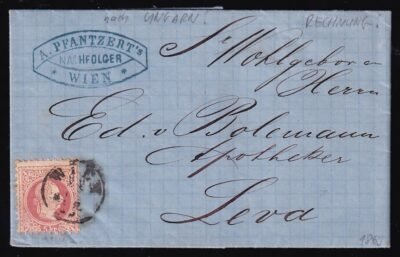 nach UNGARN.
RECHNUNG.
A. PFANTZERT's
NACHFOLGER
WIEN
Sr Wohlgeboren
Herrn
Ed. v Bolemann
Apotheker
Leva
WIEN